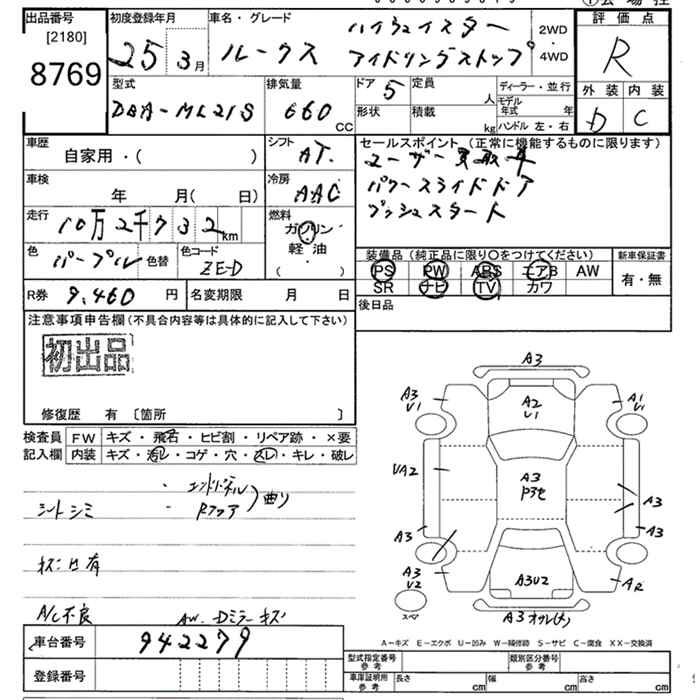 出品番号
[2180]
8769
初度登録年月
25 3月
車名・グレード
ルークス ハイウェイスター
アイドリングストップ
2WD
4WD
評価点
R
外装 内装
D C
型式
DBA-ML21S
排気量
660
CC
ドア 5
形状
定員
人
積載
kg
ディーラー・並行
モデル年式 年
ハンドル 左・右
車歴
自家用・( )
シフト
AT.
車検
年 月( 日)
冷房
AAC
走行
10万2千732 km
燃料
ガソリン
軽油
( ・ )
色
パープル
色替
色コード
ZE-D
R券 9,460 円
名変期限 月 日
セールスポイント (正常に機能するものに限ります)
ユーザー買取車
パワースライドドア
プッシュスタート
装備品(純正品に限り〇をつけてください)
PS PW ABS エアB AW
SR ナビ TV カワ
新車保証書
有・無
後日品
注意事項申告欄(不具合内容等は具体的に記入して下さい)
初出品
修復歴 有 〔箇所 〕
検査員記入欄
FW キズ・飛石・ヒビ割・リペア跡・×要
内装 キズ・汚レ・コゲ・穴・スレ・キレ・破レ
・エンドパネル
・Rフロア
曲り
シートシミ
キズ凹有
A/C不良
AW・Dミラーキズ
車台番号 942279
登録番号
A3
A3
U1
A2
U1
A1
U1
UA2
A3
P3セ
A3
A3
A3
A3
U2
A3U2
AR
スペア
A3
A-キズ E-エクボ U-凹み W-補修跡 S-サビ C-腐食 XX-交換済
型式指定番号
参考
類別区分番号
参考
車庫証明用
参考
長さ cm
幅 cm
高さ cm